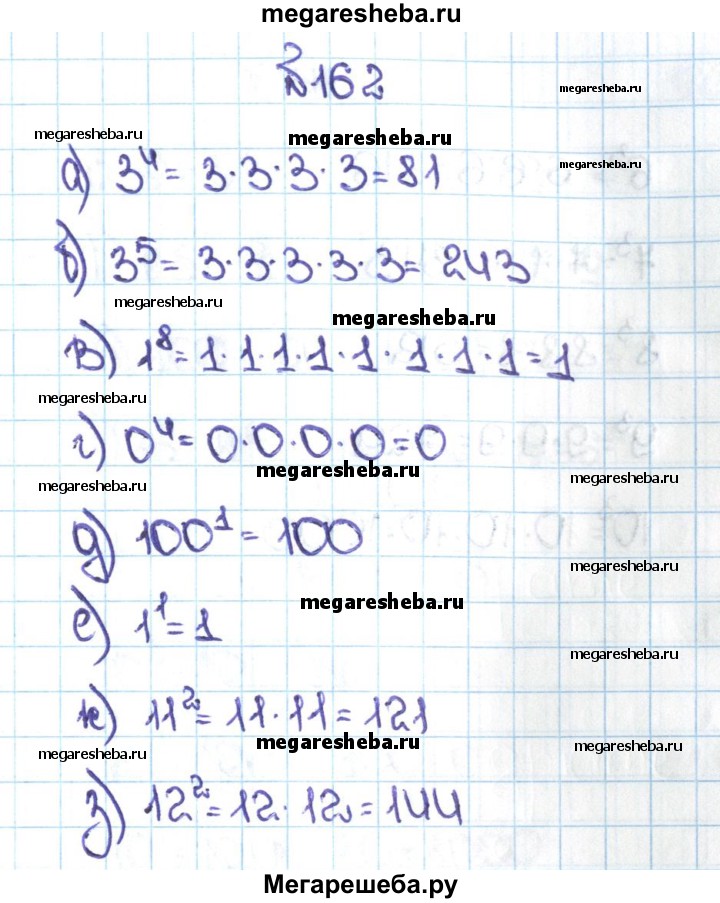 megaresheba.ru
№162
megaresheba.ru
megaresheba.ru
megaresheba.ru
megaresheba.ru
а) 3⁴ = 3·3·3·3=81
б) 3⁵ = 3·3·3·3·3= 243
megaresheba.ru
megaresheba.ru
в) 1⁸ = 1·1·1·1·1·1·1·1=1
megaresheba.ru
г) 0⁴ = 0·0·0·0=0
megaresheba.ru
megaresheba.ru
megaresheba.ru
д) 100¹ = 100
megaresheba.ru
megaresheba.ru
е) 1¹ = 1
megaresheba.ru
ж) 11² = 11·11 = 121
megaresheba.ru
megaresheba.ru
з) 12² = 12·12 = 144
Мегарешеба.ру